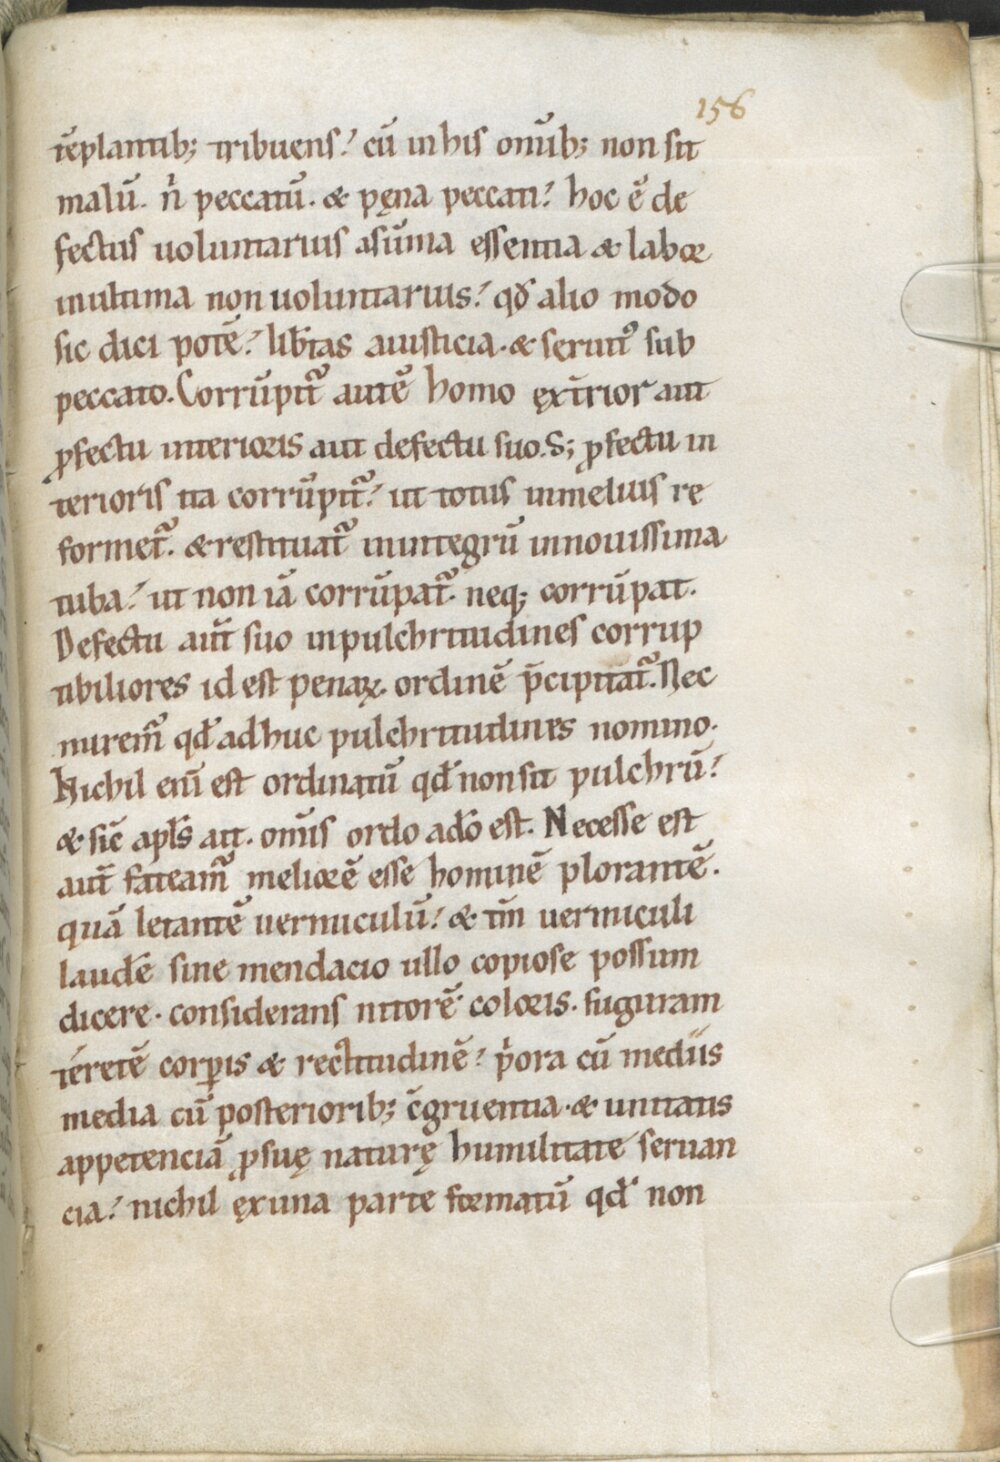 156
tēplantib; tribuens? cū in his omīb; non sit
malū. ñ peccatū. & pęna peccati? hoc ē̄ de
fectus uoluntarius asūma essentia & labor
inultima non uoluntarius? qd̄ alio modo
sic dici potē? lib̄tas aiusticia. & seruit᷒ sub
peccato. Corrūpit᷑ autē homo ext̄rior aut
ꝓfectu interioris aut defectu suo. S; ꝓfectu in
terioris ita corrūpit᷑? ut totus inmelius re
formet᷑. & restituat᷑ inintegrū innouissima
tuba? ut non iā corrūpat᷑. neq; corrūpat.
Defectu aut̄ suo inpulchritudines corrup
tibiliores id est penaꝝ. ordinē p̄cipitat᷑. Nec
miremͬ qd̄ adhuc pulchritudines nomino.
Nichil enī est ordinatū qd̄ non sit pulchrū?
& sic̄ apl̄s ait. om̄is ordo ad̄o est. Necesse est
aut̄ fateamͬ meliorē esse hominē plorantē.
quā letantē uermiculū? & tm̄ uermiculi
laudē sine mendacio ullo copiose possum
dicere. considerans nitorē coloris. figuram
téretē corꝑis & rectitudinē? p̍ora cū mediis
media cū posteriorib; c̄gruentia. & unitatis
appetenciā ꝓ suę naturę humilitate seruan
cia? nichil ęx una parte formatū qd̄ non